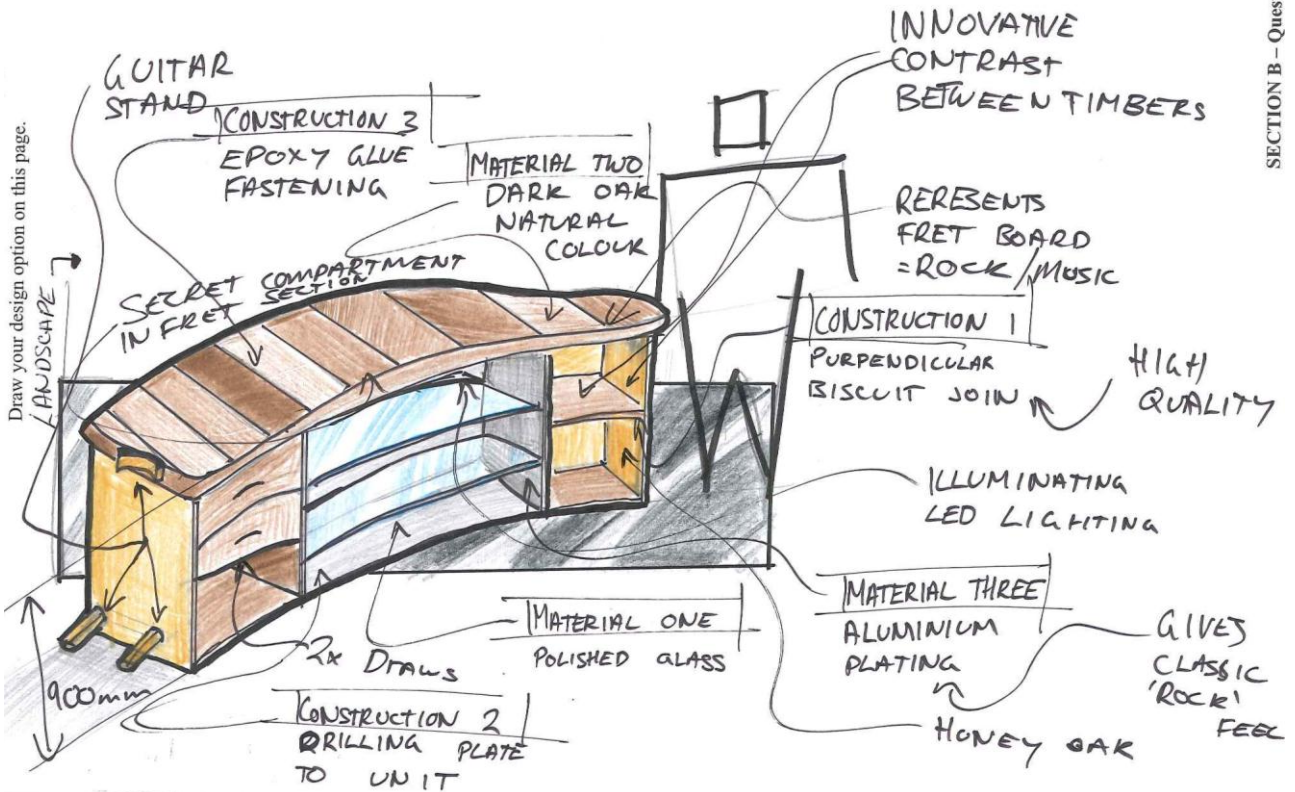 Draw your design option on this page.
LANDSCAPE
SECTION B – Ques
GUITAR
STAND
CONSTRUCTION 3
EPOXY GLUE
FASTENING
MATERIAL TWO
DARK OAK
NATURAL
COLOUR
INNOVATIVE
CONTRAST
BETWEEN TIMBERS
SECRET COMPARTMENT
IN FRET SECTION
RERESENTS
FRET BOARD
=ROCK / MUSIC
CONSTRUCTION 1
PURPENDICULAR
BISCUIT JOIN
HIGH
QUALITY
ILLUMINATING
LED LIGHTING
MATERIAL THREE
ALUMINIUM
PLATING
GIVES
CLASSIC
'ROCK'
FEEL
HONEY OAK
MATERIAL ONE
POLISHED GLASS
2x Draws
900mm
CONSTRUCTION 2
DRILLING PLATE
TO UNIT